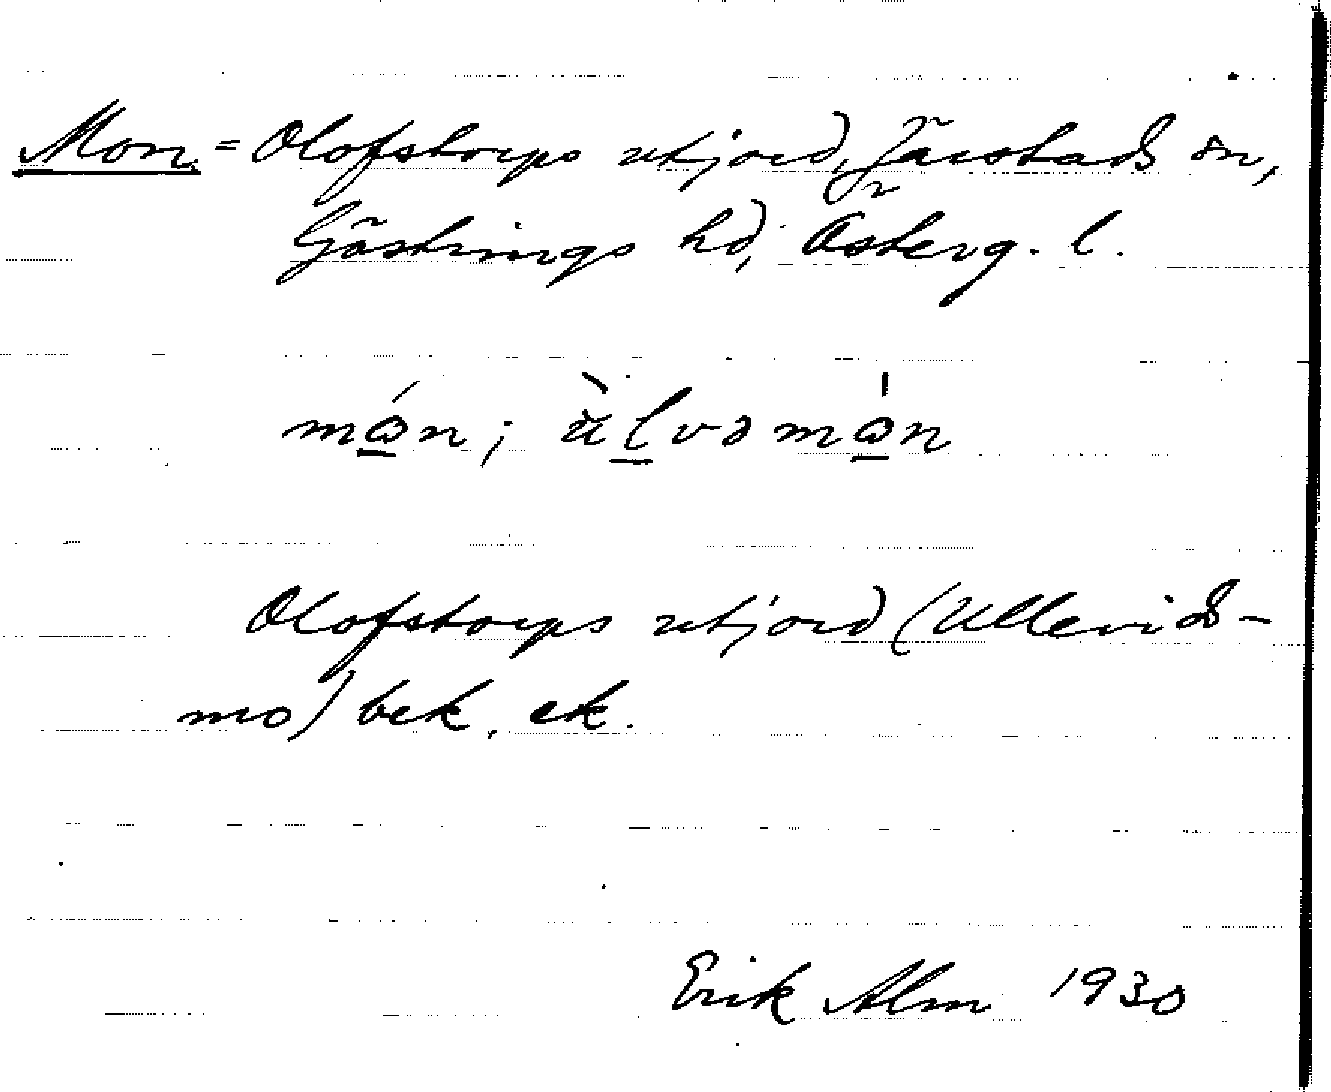 Mon. = Olofstorps utjord, Järstads sn,
Göstrings hd, Österg. l.
mωn; ùlvəmωn
Olofstorps utjord (Ullevids-
mo) bek. ek.
Erik Alm 1930